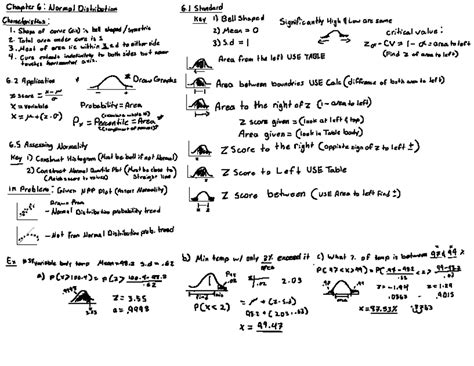 Chapter 6: Normal Distribution
Characteristics:
1. Shape of curve is bell shaped / symmetric
2. Total area under curve is 1
3. Most of area is within 3 s.d to either side
4. Curve extends indefinitely to both sides but never touches horizontal axis.
6.2 Application
* Draw Graphs
Z score = x-μ / σ
X = variable
X = μ + (z·σ)
Probability = Area
Percentile = Area
6.5 Assessing Normality
Key 1) Construct Histogram (Must be bell if not Normal)
2) Construct Normal Quantile Plot (Must be close to straight line)
In Problem: Given NPP Plot (Assess Normality)
Drawn from
- Normal Distribution probability trend
- Not From Normal Distribution prob. trend
6.1 Standard
Key 1) Bell Shaped
2) Mean = 0
3) S.d = 1
Significantly High & Low are same
critical value:
Zα - CV = 1-α = area to left
(Find Z of area to left)
Area from the left USE TABLE
Area between boundries USE Calc (difference of both area to left)
Area to the right of z (1 - area to left)
Z score given = (look at left & top)
Area given = (look in Table body)
Z Score to the right (opposite sign of z to left ±)
Z Score to Left USE Table
Z Score between (USE Area to left find ±)
Ex
body temp Mean = 98.2 S.d = .62
a) P(x>100.4) = P(z> 100.4-98.2 / .62
.9998
3.55
Z = 3.55
a = .9998
b) Min temp w/ only 2% exceed it
2.03
P(X<2)
= μ + (z·s.d)
X = 99.47
c) What % of temp is between 97 & 99
P(97<x<99)
Z = -1.94
.9015
X = 87.53%